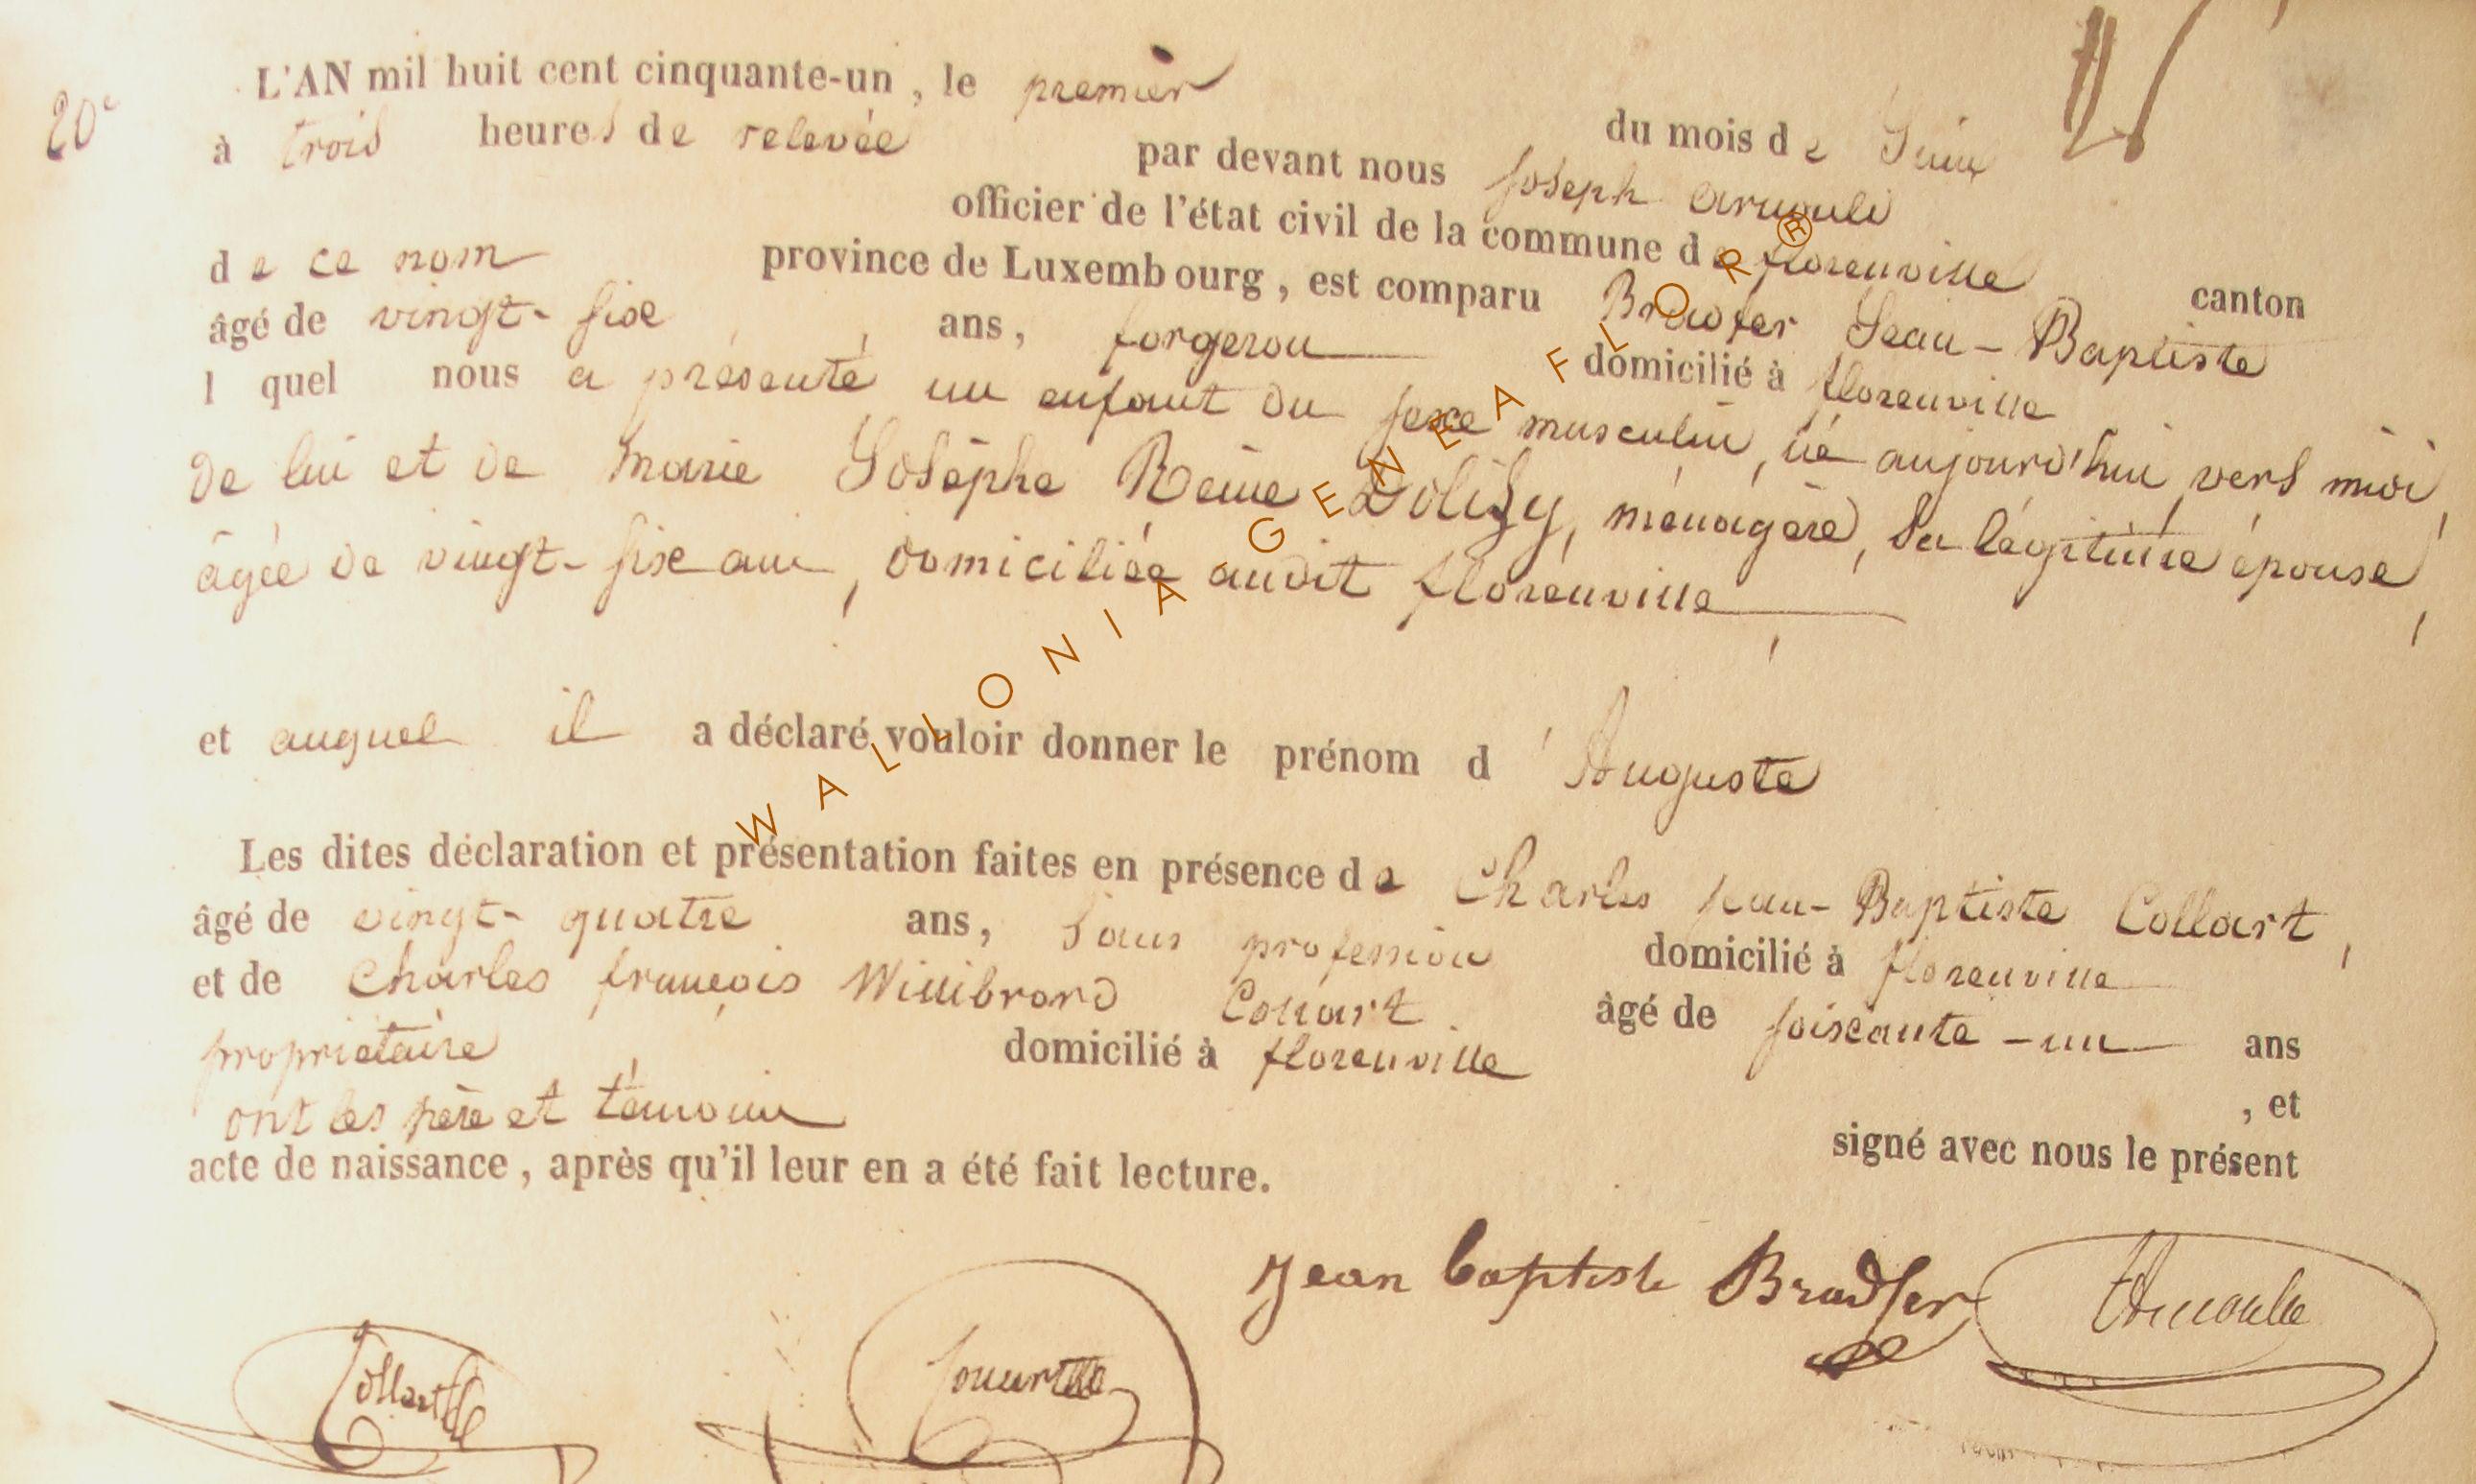 20e
L'AN mil huit cent cinquante-un, le premier du mois de Juin
à trois heures de relevée par devant nous Joseph Arnould
officier de l'état civil de la commune de florenville canton
de ce nom province de Luxembourg, est comparu Bradfer Jean-Baptiste
âgé de vingt-six ans, forgeron domicilié à florenville
l quel nous a présenté un enfant du sexe musculin, né aujourd'hui vers midi,
de lui et de marie Joséphe Reine Dolizy, ménagère, sa légitime épouse,
âgée de vingt-six ans, domiciliée audit florenville
et auquel il a déclaré vouloir donner le prénom d'Auguste
Les dites déclaration et présentation faites en présence de Charles Jean-Baptiste Collart,
âgé de vingt-quatre ans, sans profession domicilié à florenville
et de Charles françois Willibrord Collart âgé de soixante-un ans
propriétaire domicilié à florenville, et
ont les père et témoins signé avec nous le présent
acte de naissance, après qu'il leur en a été fait lecture.
Jean baptiste Bradfer
WALLONIA GENEAFLOR®